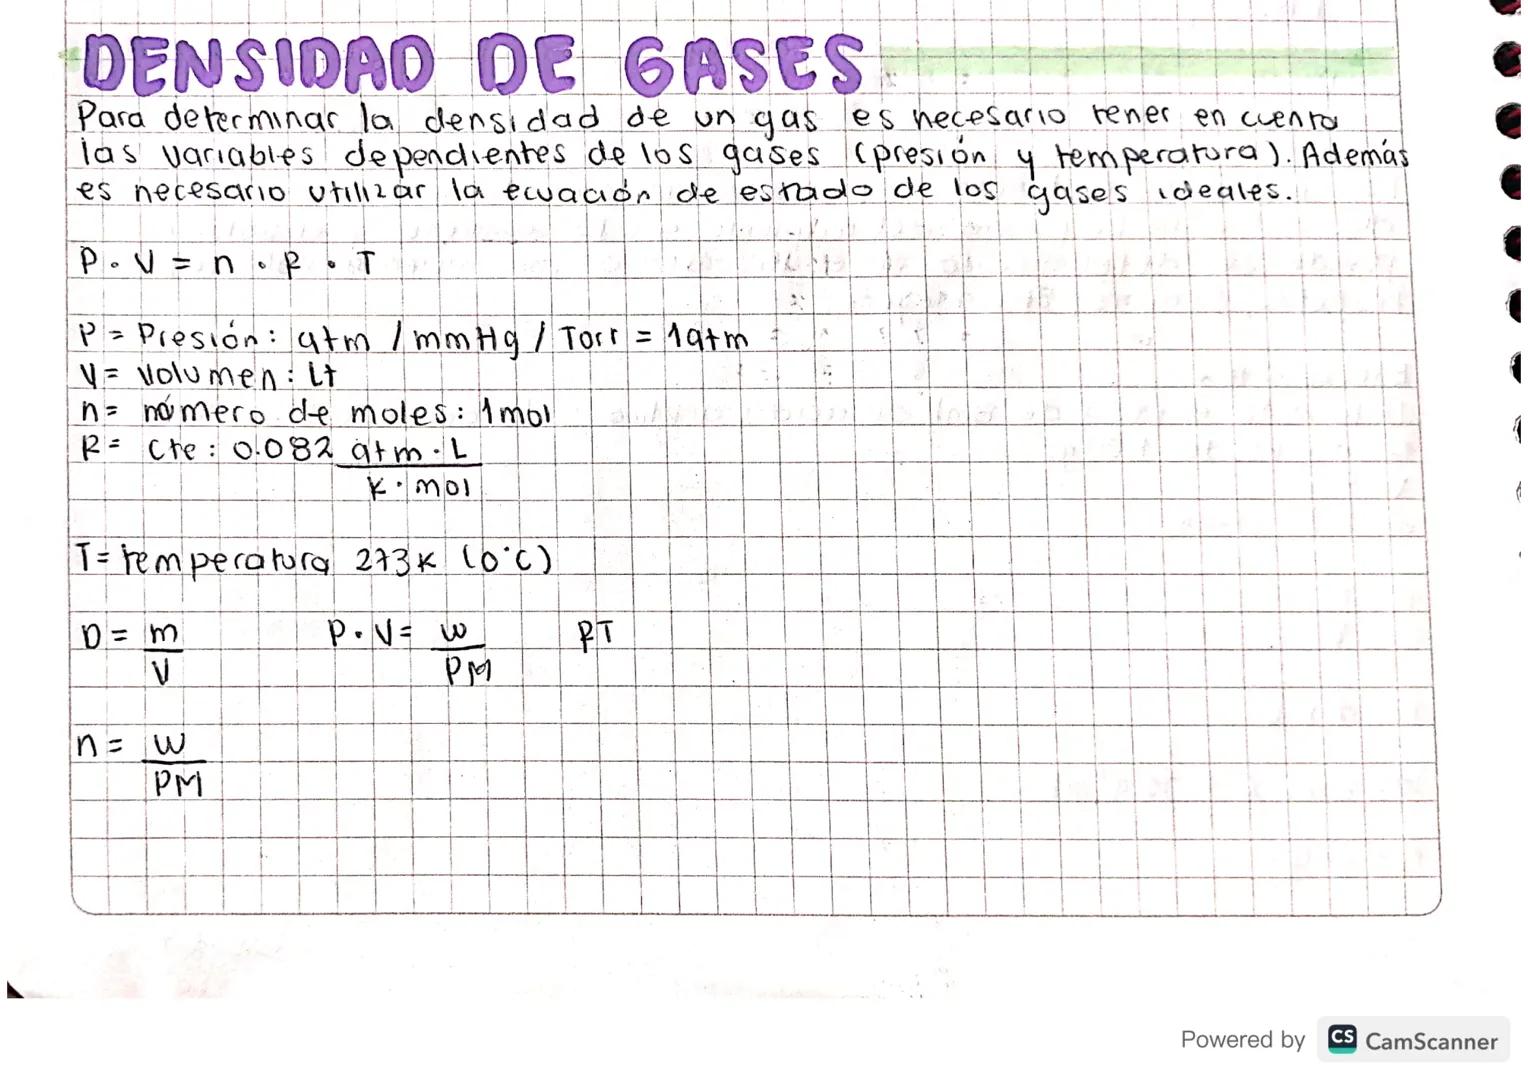 DENSIDAD DE GASES
Para determinar la densidad de un gas es necesario tener en cuenta
las variables dependientes de los gases (presión y temperatura). Además
es necesario utilizar la ecuación de estado de los gases ideales.
P . V = n . R . T
P = Presión: atm / mmHg / Torr = 1atm
V = Volumen: Lt
n = número de moles: 1mol
R = Cte: 0.082 atm . L
K . mol
T = temperatura 273K (0°C)
D = m P . V = w RT
V PM
n = w
PM
Powered by CS CamScanner